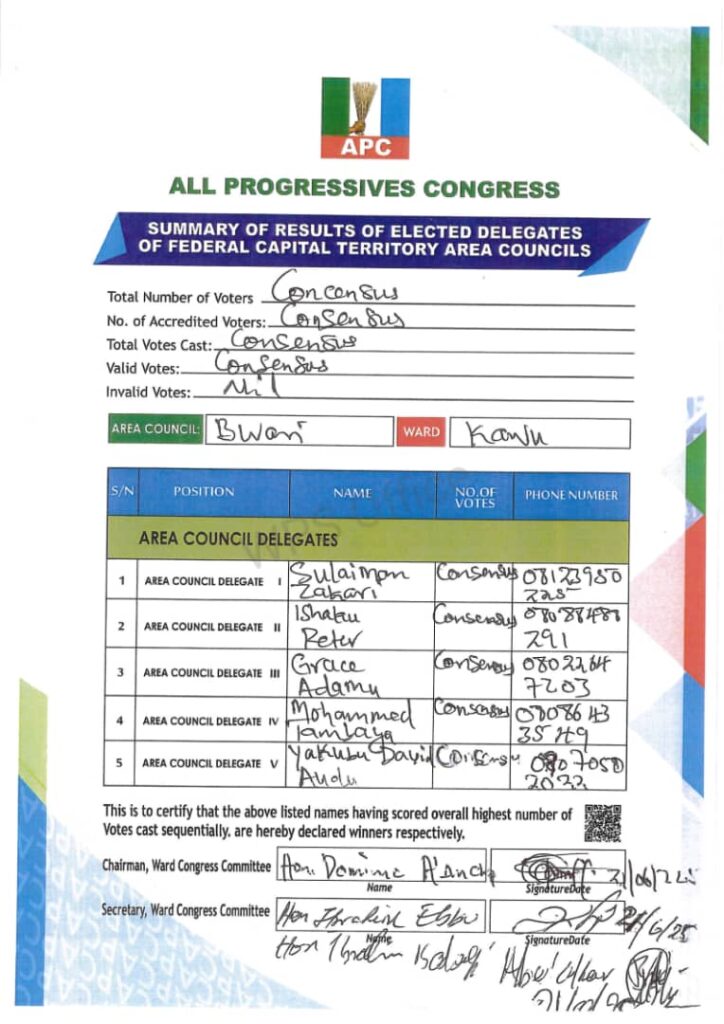 APC
ALL PROGRESSIVES CONGRESS
SUMMARY OF RESULTS OF ELECTED DELEGATES
OF FEDERAL CAPITAL TERRITORY AREA COUNCILS
Total Number of Voters Concensus
No. of Accredited Voters: Consensus
Total Votes Cast: Consensus
Valid Votes: Consensus
Invalid Votes: Nil
AREA COUNCIL: Bwari WARD Kawu
S/N POSITION NAME NO.OF VOTES PHONE NUMBER
AREA COUNCIL DELEGATES
1 AREA COUNCIL DELEGATE I Sulaiman Zakari Consensus 08123950
2 AREA COUNCIL DELEGATE II Ishaku Peter Consensus 291
3 AREA COUNCIL DELEGATE III Grace Adamu Consensus 7203
4 AREA COUNCIL DELEGATE IV Mohammed Consensus
5 AREA COUNCIL DELEGATE V Yakubu David Audu 2022
This is to certify that the above listed names having scored overall highest number of
Votes cast sequentially. are hereby declared winners respectively.
Chairman, Ward Congress Committee Hon. 
Name SignatureDate
Secretary, Ward Congress Committee Hon Ibrahim
Name SignatureDate
Hon
WPS Office